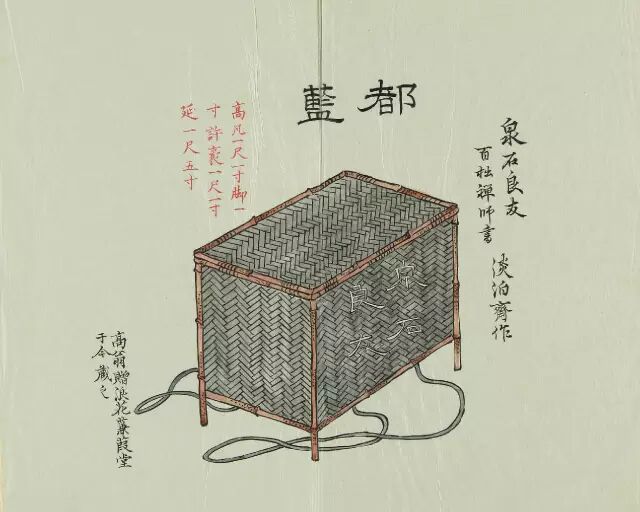 都藍
泉石良友
百拙禪師書
淡泊齋作
高凡一尺一寸脚一
寸許袤一尺一寸
延一尺五寸
泉石
良友
高翁贈浪花蒹葭堂
于今藏之